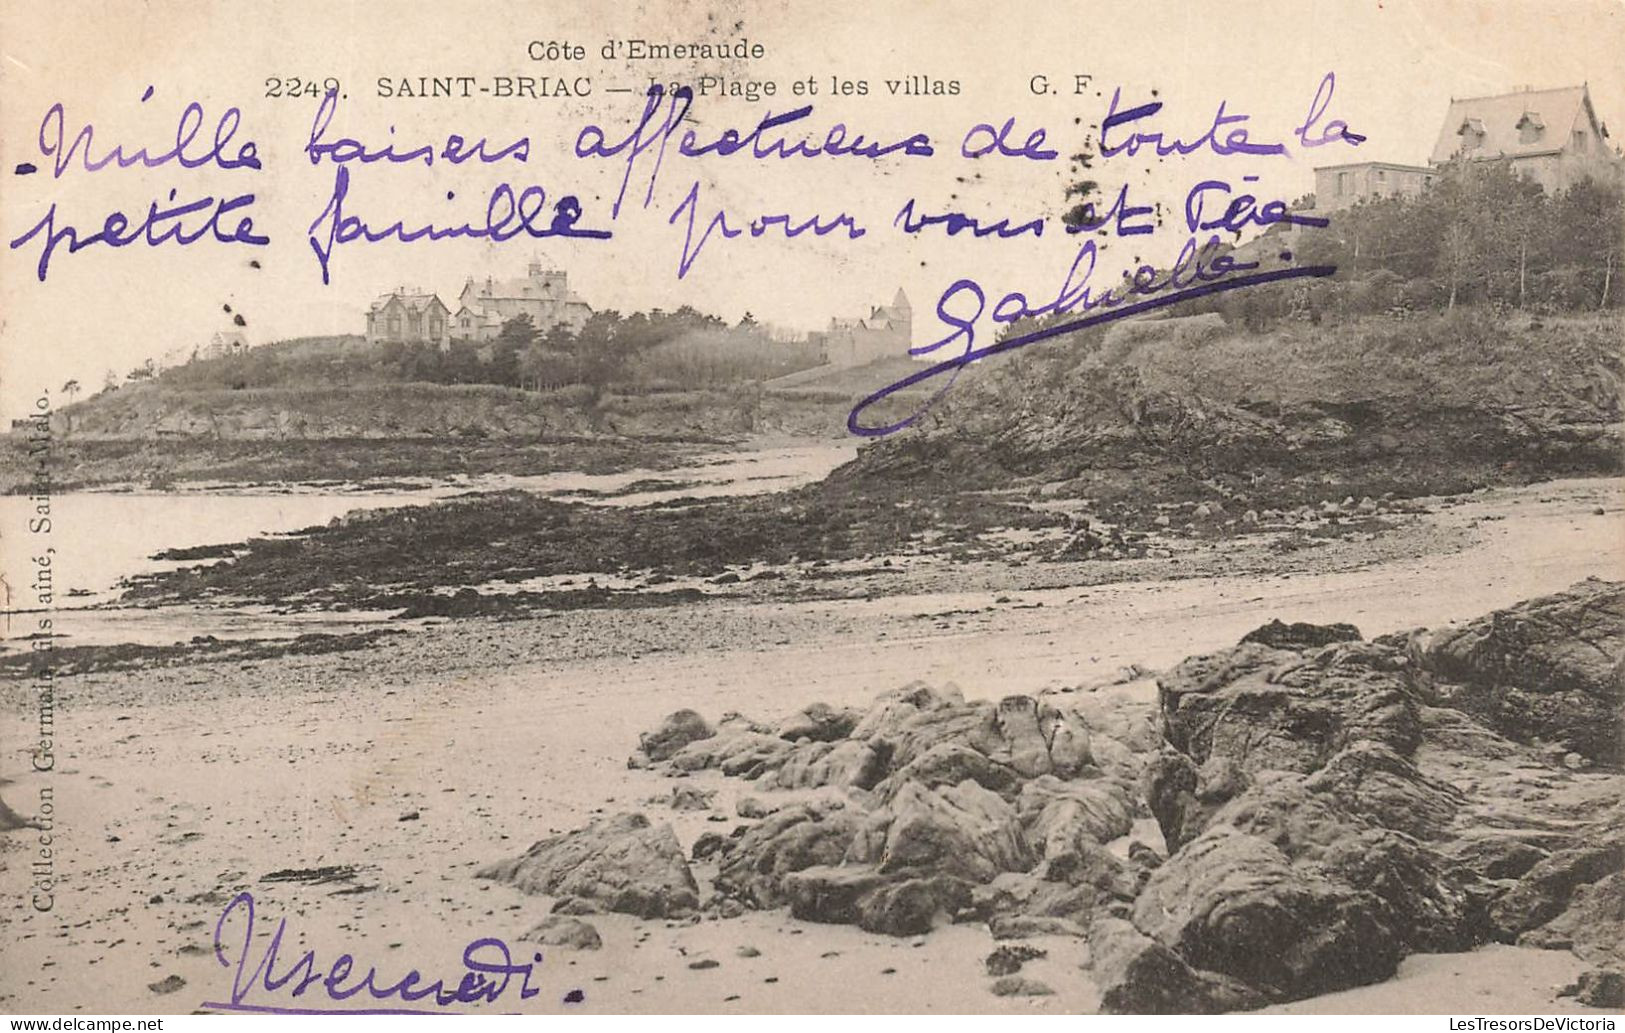 Côte d'Emeraude
2249. SAINT-BRIAC — La Plage et les villas G. F.
Mille baisers affectueux de toute la
petite famille pour vous et
Gabrielle.
Collection Germain fils aîné, Saint-Malo.
Mercredi.
LesTresorsDeVictoria